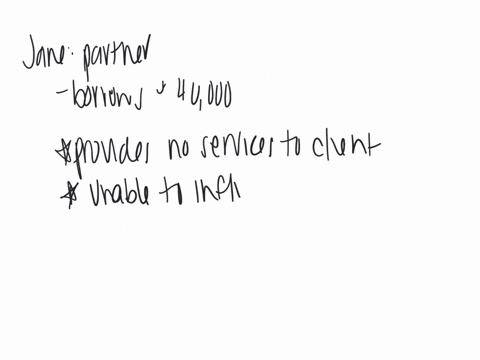 Jane: partner
- borrows $40,000
* provides no services to client
* unable to infl